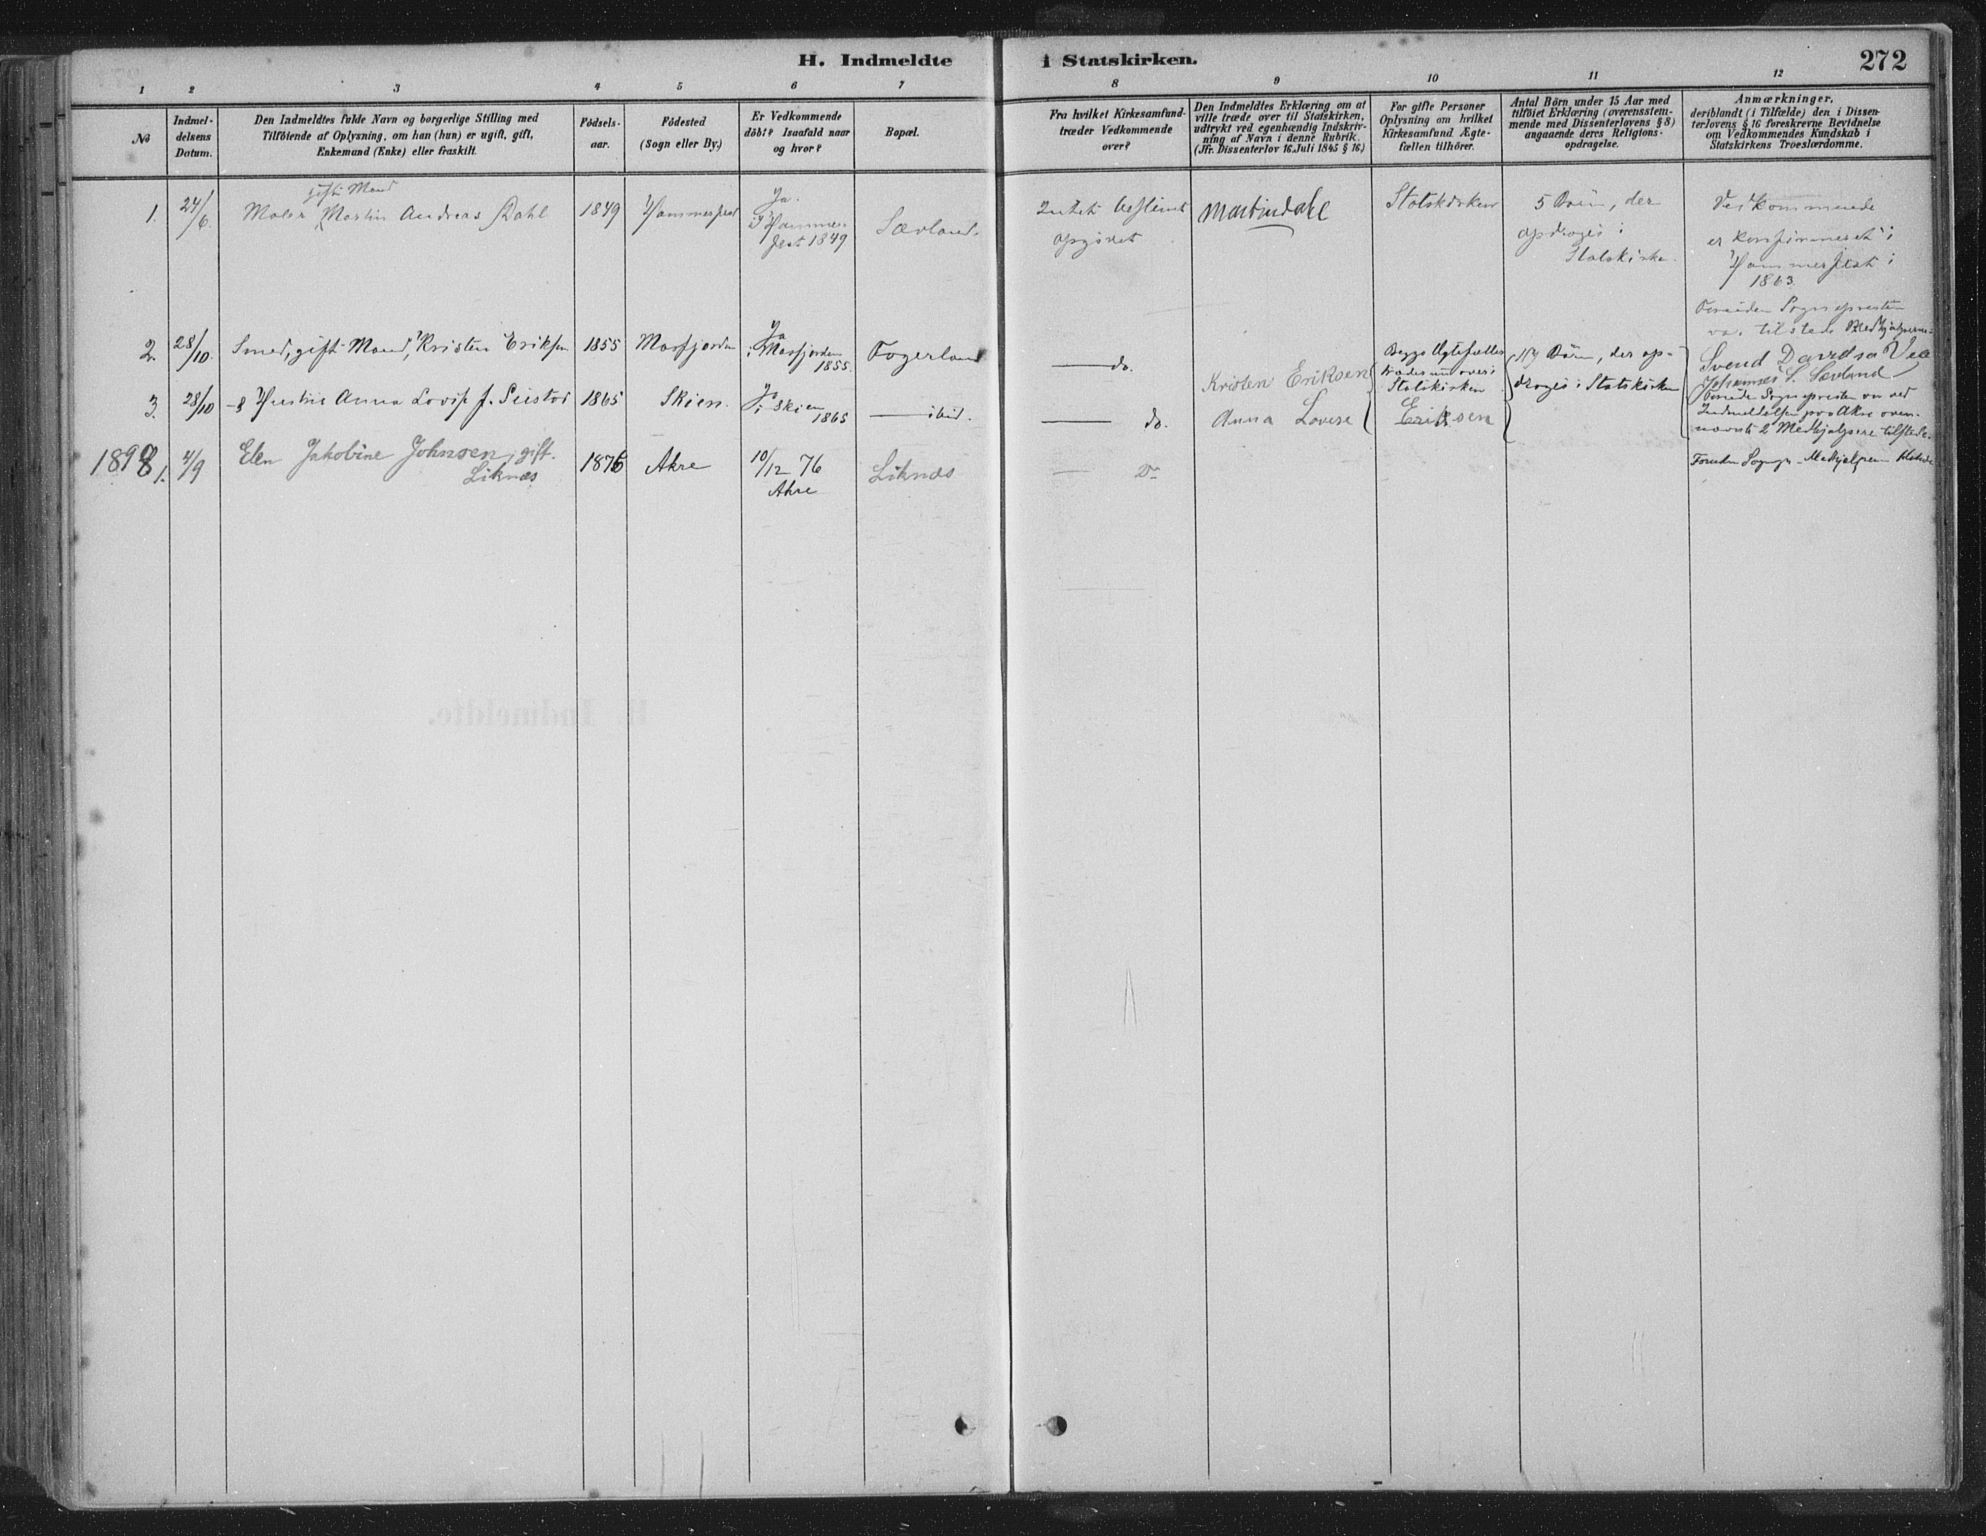 H. Indmeldte i Statskirken. 272
1 2 3 4 5 6 7 8 9 10 11 12
No
Indmel-
delsens
Datum.
Den Indmeldtes fulde Navn og borgerlige Stilling med
Tilföiende af Oplysning, om han (hun) er ugift, gift,
Enkemand (Enke) eller fraskilt.
Födsels-
aar.
Födested
(Sogn eller By.)
Er Vedkommende
döbt? Isaafald naar
og hvor?
Bopæl.
Fra hvilket Kirkesamfund
træder Vedkommende
over?
Den Indmeldtes Erklæring om at
ville træde over til Statskirken,
udtrykt ved egenhændig Indskriv-
ning af Navn i denne Rubrik.
(Jfr. Dissenterlov 16. Juli 1845 § 16.)
For gifte Personer
Oplysning om hvilket
Kirkesamfund Ægte-
fællen tilhörer.
Antal Börn under 15 Aar med
tilföiet Erklæring (overensstem-
mende med Dissenterlovens § 8)
angaaende deres Religions-
opdragelse.
Anmærkninger,
deriblandt (i Tilfælde) den i Dissen-
terlovens § 16 foreskrevne Bevidnelse
om Vedkommendes Kundskab i
Statskirkens Troeslærdomme.
1.
24/6
gift Mand
Maler Martin Andreas Dahl
1849
Hammerfest
Ja.
I Hammer-
fest 1849
Sævland.
Intet bestemt
opgivet
Martin dahl
Statskirken
5 Börn, der
opdrages i
Statskirke.
Vedkommende
er konfirmeret i
Hammerfest i
1863.
Foruden Sognepresten
var tilstede Medhjælperne
2.
28/10.
Smed, gift Mand, Kristen Eriksen
1855
Ja
1855.
Fogerland
do.
Kristen Eriksen
Begge Ægtefæller
træde nu over i
Statskirken
Börn, der op-
drages i Statskirken
Svend Davidsa Vea
Johannes S. Sævland
3.
28/10
Hustru Anna Lovise J.
1865
Skien.
Ja
i Skien
1865
ibid.
do.
Anna Lovise Eriksen
Foruden Sognepresten var ved
Indmeldelsen paa Akre oven-
nævnte 2 Medhjælpere tilstede.
1898
1.
4/9
Elen Jakobine Johnsen, gift.
Liknæs
1876
Akre
10/12 76
Akre
Liknæs
Do
Foruden Sognepr. Medhjælperen